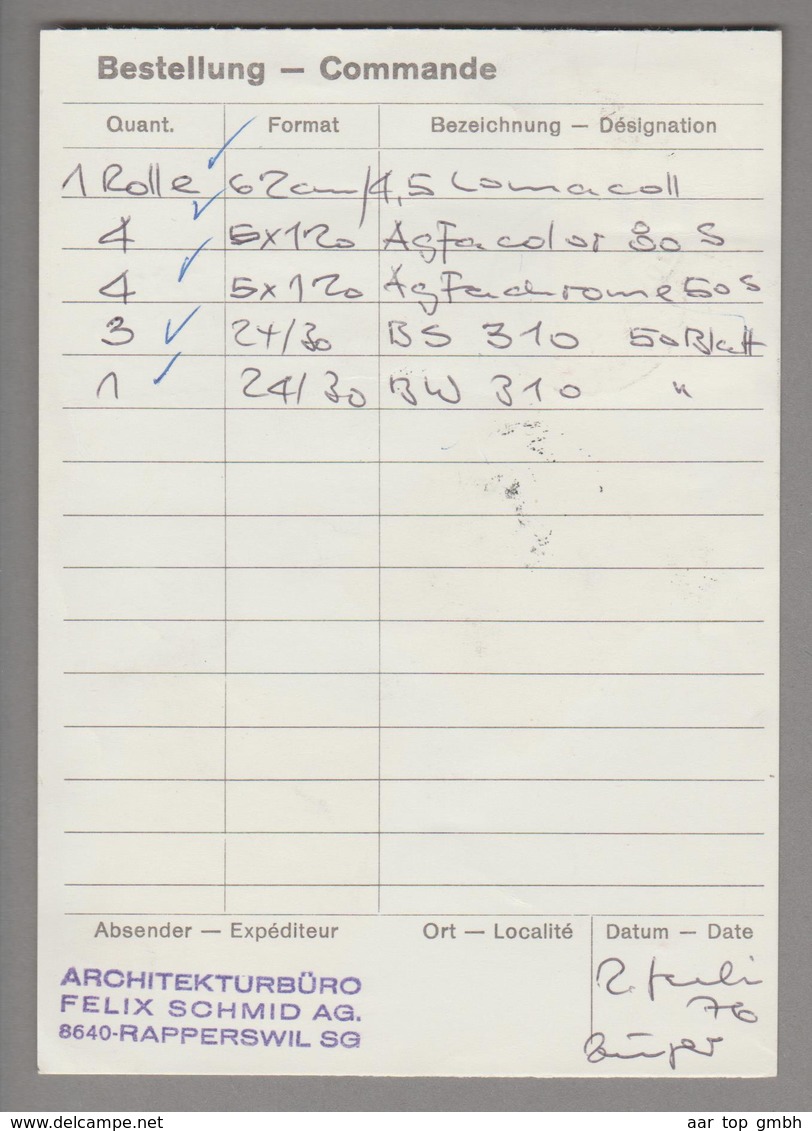 Bestellung — Commande
Quant. Format Bezeichnung — Désignation
1 Rolle 62cm/4,5 Lomacoll
4 5x120 Agfacolor 80 S
4 5x120 Agfachrome 50 S
3 24/30 BS 310 50 Blatt
1 24/30 BW 310 "
Absender — Expéditeur Ort — Localité Datum — Date
ARCHITEKTURBÜRO
FELIX SCHMID AG.
8640-RAPPERSWIL SG
2. Juli
76
www.delcampe.net
aar top gmbh